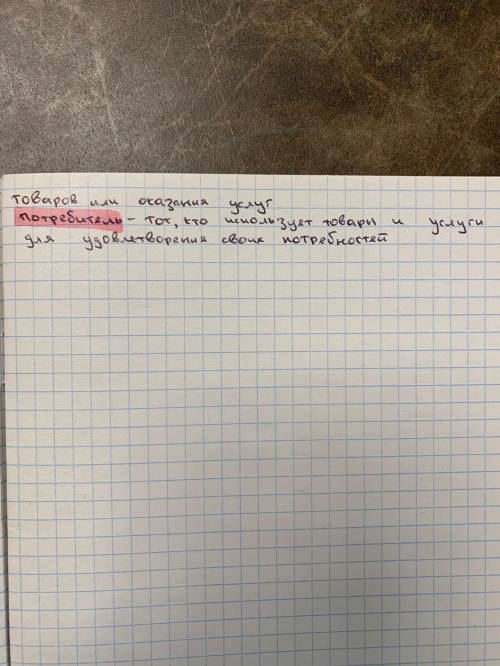 товаров или оказания услуг
потребитель - тот, кто использует товары и услуги
для удовлетворения своих потребностей